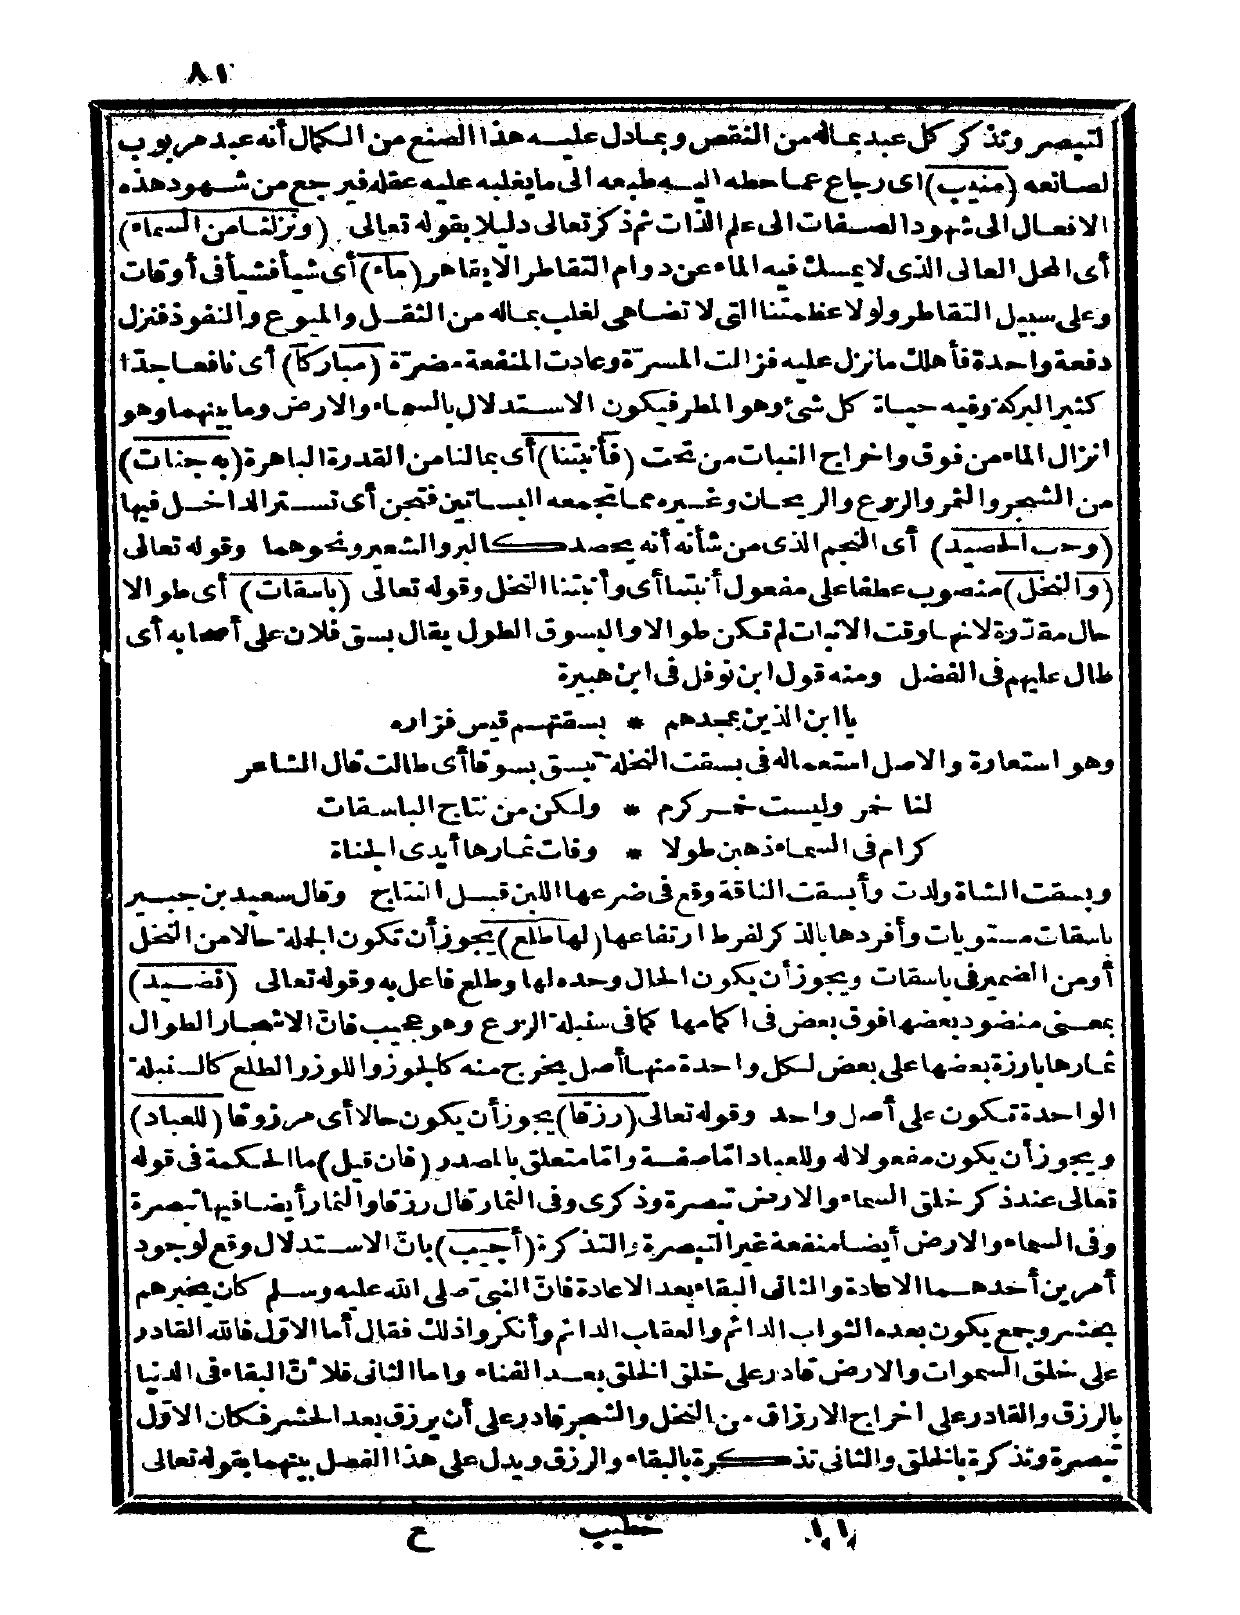 ٨١
لتبصر وتذكر كل عبد بماله من النقص وبمادل عليه هذا الصنع من الكمال أنه عبد مربوب
لصانعه (منيب) اى رجاع عما حطه اليه طبعه الى ما يغلبه عليه عقله فيرجع من شهود هذه
الافعال الى شهود الصفات الى علم الذات ثم ذكر تعالى دليلا بقوله تعالى (ونزلنا من السماء)
أى المحل العالى الذى لا يمسك فيه الماء عن دوام التقاطر الا بقاهر (ماء) أى شيأ فشيأ فى أوقات
وعلى سبيل التقاطر ولولا عظمتنا التى لا تضاهى لغلب بماله من الثقل والميوع والنفوذ فنزل
دفعة واحدة فأهلك ما نزل عليه فزالت المسرّة وعادت المنفعة مضرّة (مباركا) أى نافعا جدّا
كثير البركة وفيه حياة كل شئ وهو المطر فيكون الاستدلال بالسماء والارض وما بينهما وهو
انزال الماء من فوق واخراج النبات من تحت (فأنبتنا) أى بمالنا من القدرة الباهرة (به جنات)
من الشجر والثمر والزرع والريحان وغيره مما تجمعه البساتين فتجن أى تستر الداخل فيها
(وحب الحصيد) أى النجم الذى من شأنه أنه يحصد كالبر والشعير ونحوهما وقوله تعالى
(والنخل) منصوب عطفا على مفعول أنبتنا أى وأنبتنا النخل وقوله تعالى (باسقات) أى طوالا
حال مقدّرة لانها وقت الانبات لم تكن طوالا والبسوق الطول يقال بسق فلان على أصحابه أى
طال عليهم فى الفضل ومنه قول ابن نوفل فى ابن هبيرة
يا ابن الذين بمجدهم * بسقتهم قيس فزاره
وهو استعارة والاصل استعماله فى بسقت النخلة تبسق بسوقا أى طالت قال الشاعر
لنا خمر وليست خمر كرم * ولكن من نتاج الباسقات
كرام فى السماء ذهبن طولا * وفات ثمارها أيدى الجناة
وبسقت الشاة ولدت وأبسقت الناقة وقع فى ضرعها اللبن قبل النتاج وقال سعيد بن جبير
باسقات مستويات وأفردها بالذكر لفرط ارتفاعها (لها طلع) يجوز أن تكون الجملة حالا من النخل
أو من الضمير فى باسقات ويجوز أن يكون الحال وحده لها وطلع فاعل به وقوله تعالى (نضيد)
بمعنى منضود بعضها فوق بعض فى اكمامها كما فى سنبلة الزرع وهو عجيب فانّ الاشجار الطوال
ثمارها بارزة بعضها على بعض لكل واحدة منها أصل يخرج منه كالجوز واللوز والطلع كالسنبلة
الواحدة تكون على أصل واحد وقوله تعالى (رزقا) يجوز أن يكون حالا أى مرزوقا (للعباد)
ويجوز أن يكون مفعولا له وللعباد امّا صفة وامّا متعلق بالمصدر (فان قيل) ما الحكمة فى قوله
تعالى عند ذكر خلق السماء والارض تبصرة وذكرى وفى الثمار قال رزقا والثمار أيضا فيها تبصرة
وفى السماء والارض أيضا منفعة غير التبصرة والتذكرة (أجيب) بانّ الاستدلال وقع لوجود
أمرين أحدهما الاعادة والثانى البقاء بعد الاعادة فانّ النبىّ صلى الله عليه وسلم كان يخبرهم
بحشر وجمع يكون بعده الثواب الدائم والعقاب الدائم وأنكروا ذلك فقال أما الاوّل فالله القادر
على خلق السموات والارض قادر على خلق الخلق بعد الفناء واما الثانى فلانّ البقاء فى الدنيا
بالرزق والقادر على اخراج الارزاق من النخل والشجر قادر على أن يرزق بعد الحشر فكان الاوّل
تبصرة وتذكرة بالخلق والثانى تذكرة بالبقاء والرزق ويدل على هذا الفصل بينهما بقوله تعالى
خطيب ع